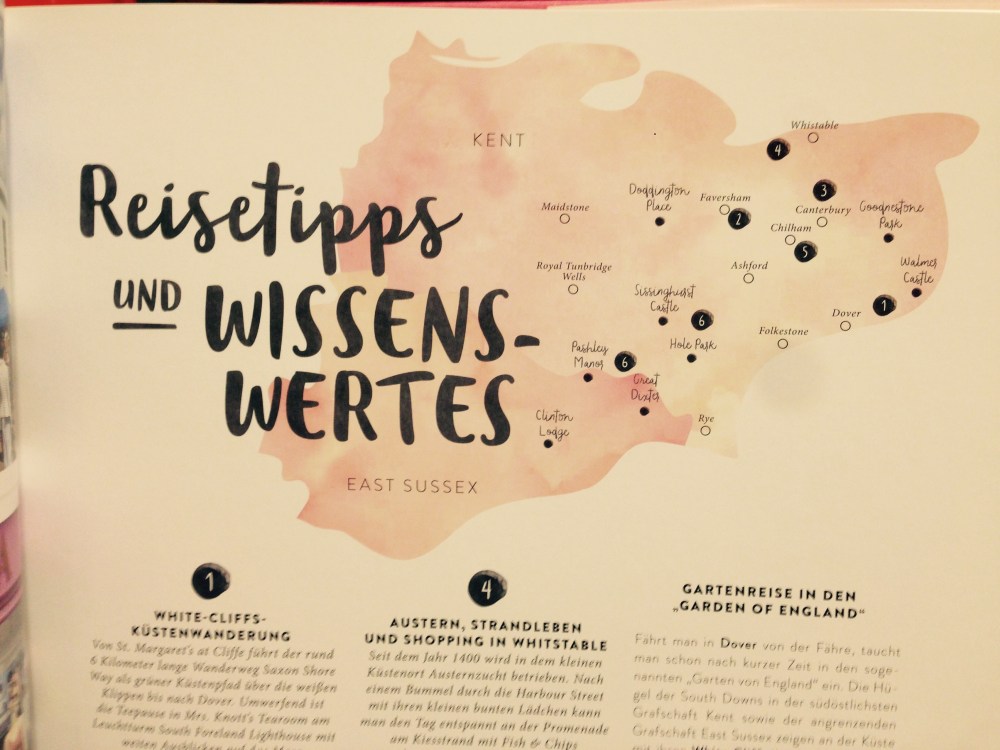 Reisetipps
UND WISSENS-
WERTES
KENT
EAST SUSSEX
Whistable
4
3
Canterbury
Faversham
2
Doddington
Place
Maidstone
Chilham
5
Goodnestone
Park
Walmer
Castle
Royal Tunbridge
Wells
Ashford
Sissinghurst
Castle
6
Hole Park
1
Dover
Folkestone
Pashley
Manor
6
Great
Dixter
Clinton
Lodge
Rye
1
WHITE-CLIFFS-
KÜSTENWANDERUNG
Von St. Margaret's at Cliffe führt der rund
6 Kilometer lange Wanderweg Saxon Shore
Way als grüner Küstenpfad über die weißen
Klippen bis nach Dover. Umwerfend ist
die Teepause in Mrs. Knott's Tearoom am
Leuchtturm South Foreland Lighthouse mit
weiten Ausblicken auf das
4
AUSTERN, STRANDLEBEN
UND SHOPPING IN WHITSTABLE
Seit dem Jahr 1400 wird in dem kleinen
Küstenort Austernzucht betrieben. Nach
einem Bummel durch die Harbour Street
mit ihren kleinen bunten Lädchen kann
man den Tag entspannt an der Promenade
am Kiesstrand mit Fish & Chips
GARTENREISE IN DEN
„GARDEN OF ENGLAND“
Fährt man in Dover von der Fähre, taucht
man schon nach kurzer Zeit in den soge-
nannten „Garten von England“ ein. Die Hü-
gel der South Downs in der südöstlichsten
Grafschaft Kent sowie der angrenzenden
Grafschaft East Sussex zeigen an der Küste